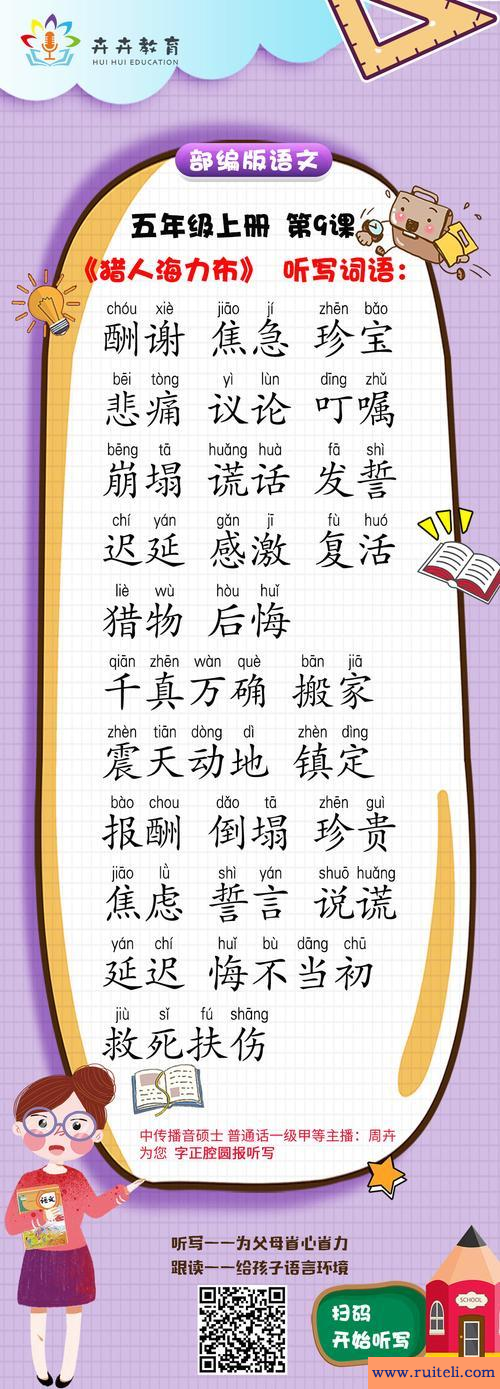 卉卉教育
HUI HUI EDUCATION
部编版语文
五年级上册 第9课
《猎人海力布》 听写词语：
chóu xiè jiāo jí zhēn bǎo
酬谢 焦急 珍宝
bēi tòng yì lùn dīng zhǔ
悲痛 议论 叮嘱
bēng tā huǎng huà fā shì
崩塌 谎话 发誓
chí yán gǎn jī fù huó
迟延 感激 复活
liè wù hòu huǐ
猎物 后悔
qiān zhēn wàn què bān jiā
千真万确 搬家
zhèn tiān dòng dì zhèn dìng
震天动地 镇定
bào chou dǎo tā zhēn guì
报酬 倒塌 珍贵
jiāo lǜ shì yán shuō huǎng
焦虑 誓言 说谎
yán chí huǐ bù dāng chū
延迟 悔不当初
jiù sǐ fú shāng
救死扶伤
中传播音硕士 普通话一级甲等主播：周卉
为您 字正腔圆报听写
语文
听写——为父母省心省力
跟读——给孩子语言环境
SCHOOL
扫码
开始听写
www.ruiteli.com